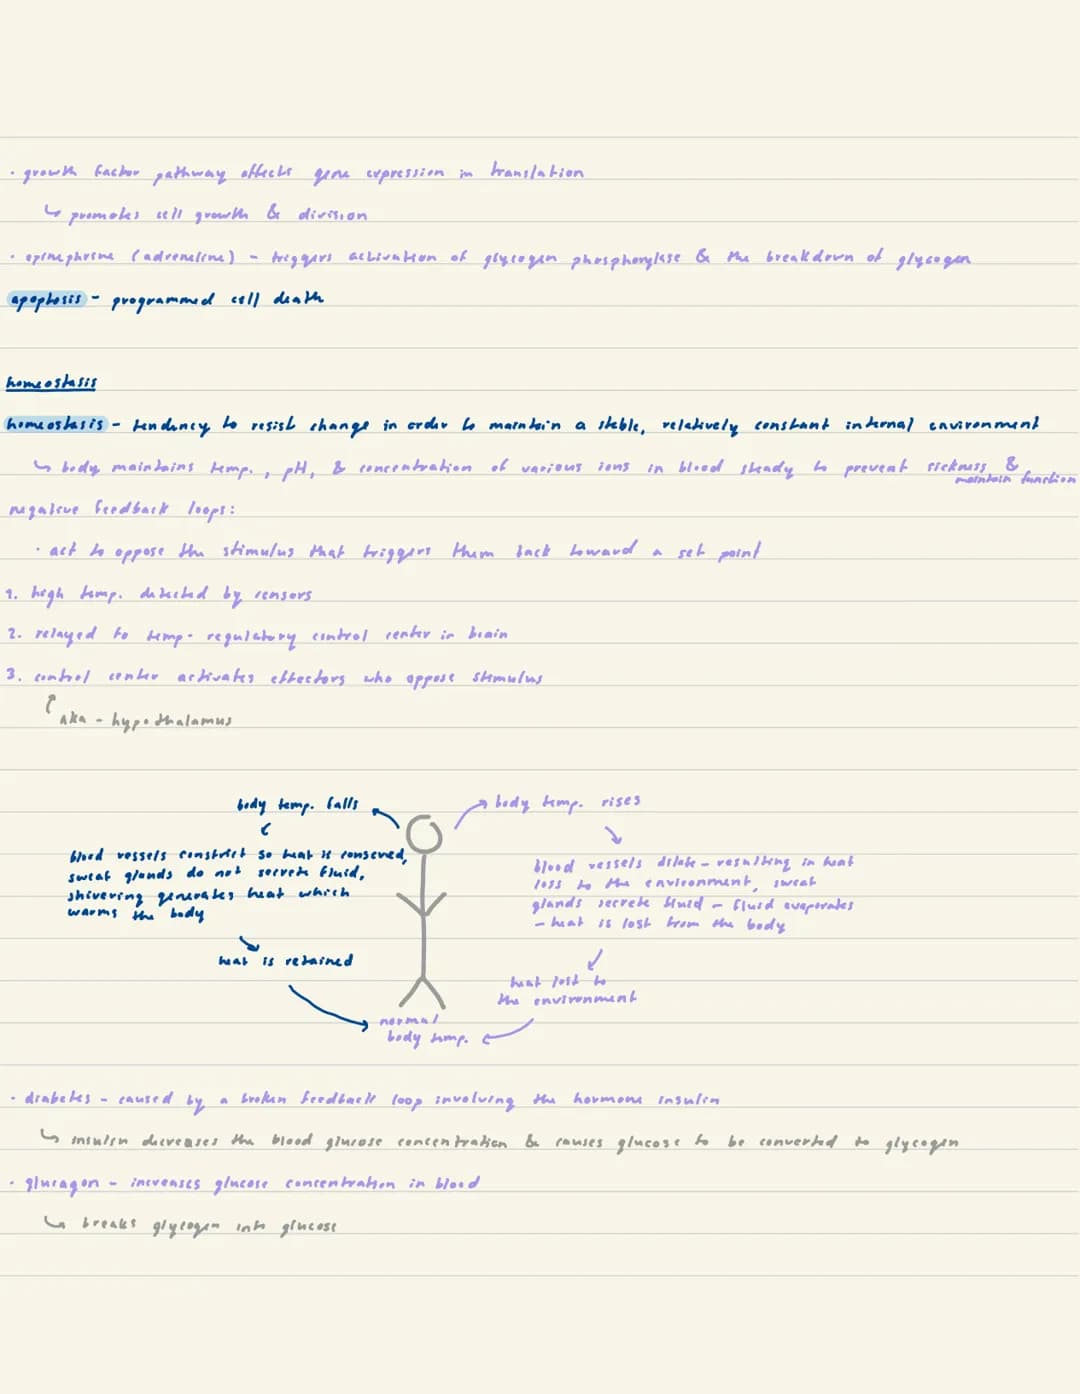 · growth factor pathway affects gene expression in translation
↳ promotes cell growth & division
· epinephrine (adrenaline) - triggers activation of glycogen phosphorylase & the breakdown of glycogen
apoptosis - programmed cell death
homeostasis
homeostasis - tendency to resist change in order to maintain a stable, relatively constant internal environment
↳ body maintains temp., pH, & concentration of various ions in blood steady to prevent sickness &
maintain function
negative feedback loops:
· act to oppose the stimulus that triggers them back toward a set point
1. high temp. detected by sensors
2. relayed to temp-regulatory control center in brain
3. control center activates effectors who oppose stimulus
aka - hypothalamus
body temp. falls
blood vessels constrict so heat is conserved,
sweat glands do not secrete fluid,
shivering generates heat which
warms the body
heat is retained
body temp. rises
blood vessels dilate - resulting in heat
loss to the environment, sweat
glands secrete fluid - fluid evaporates
- heat is lost from the body
heat lost to
the environment
normal
body temp.
· diabetes - caused by a broken feedback loop involving the hormone insulin
↳ insulin decreases the blood glucose concentration & causes glucose to be converted to glycogen
· glucagon - increases glucose concentration in blood
↳ breaks glycogen into glucose